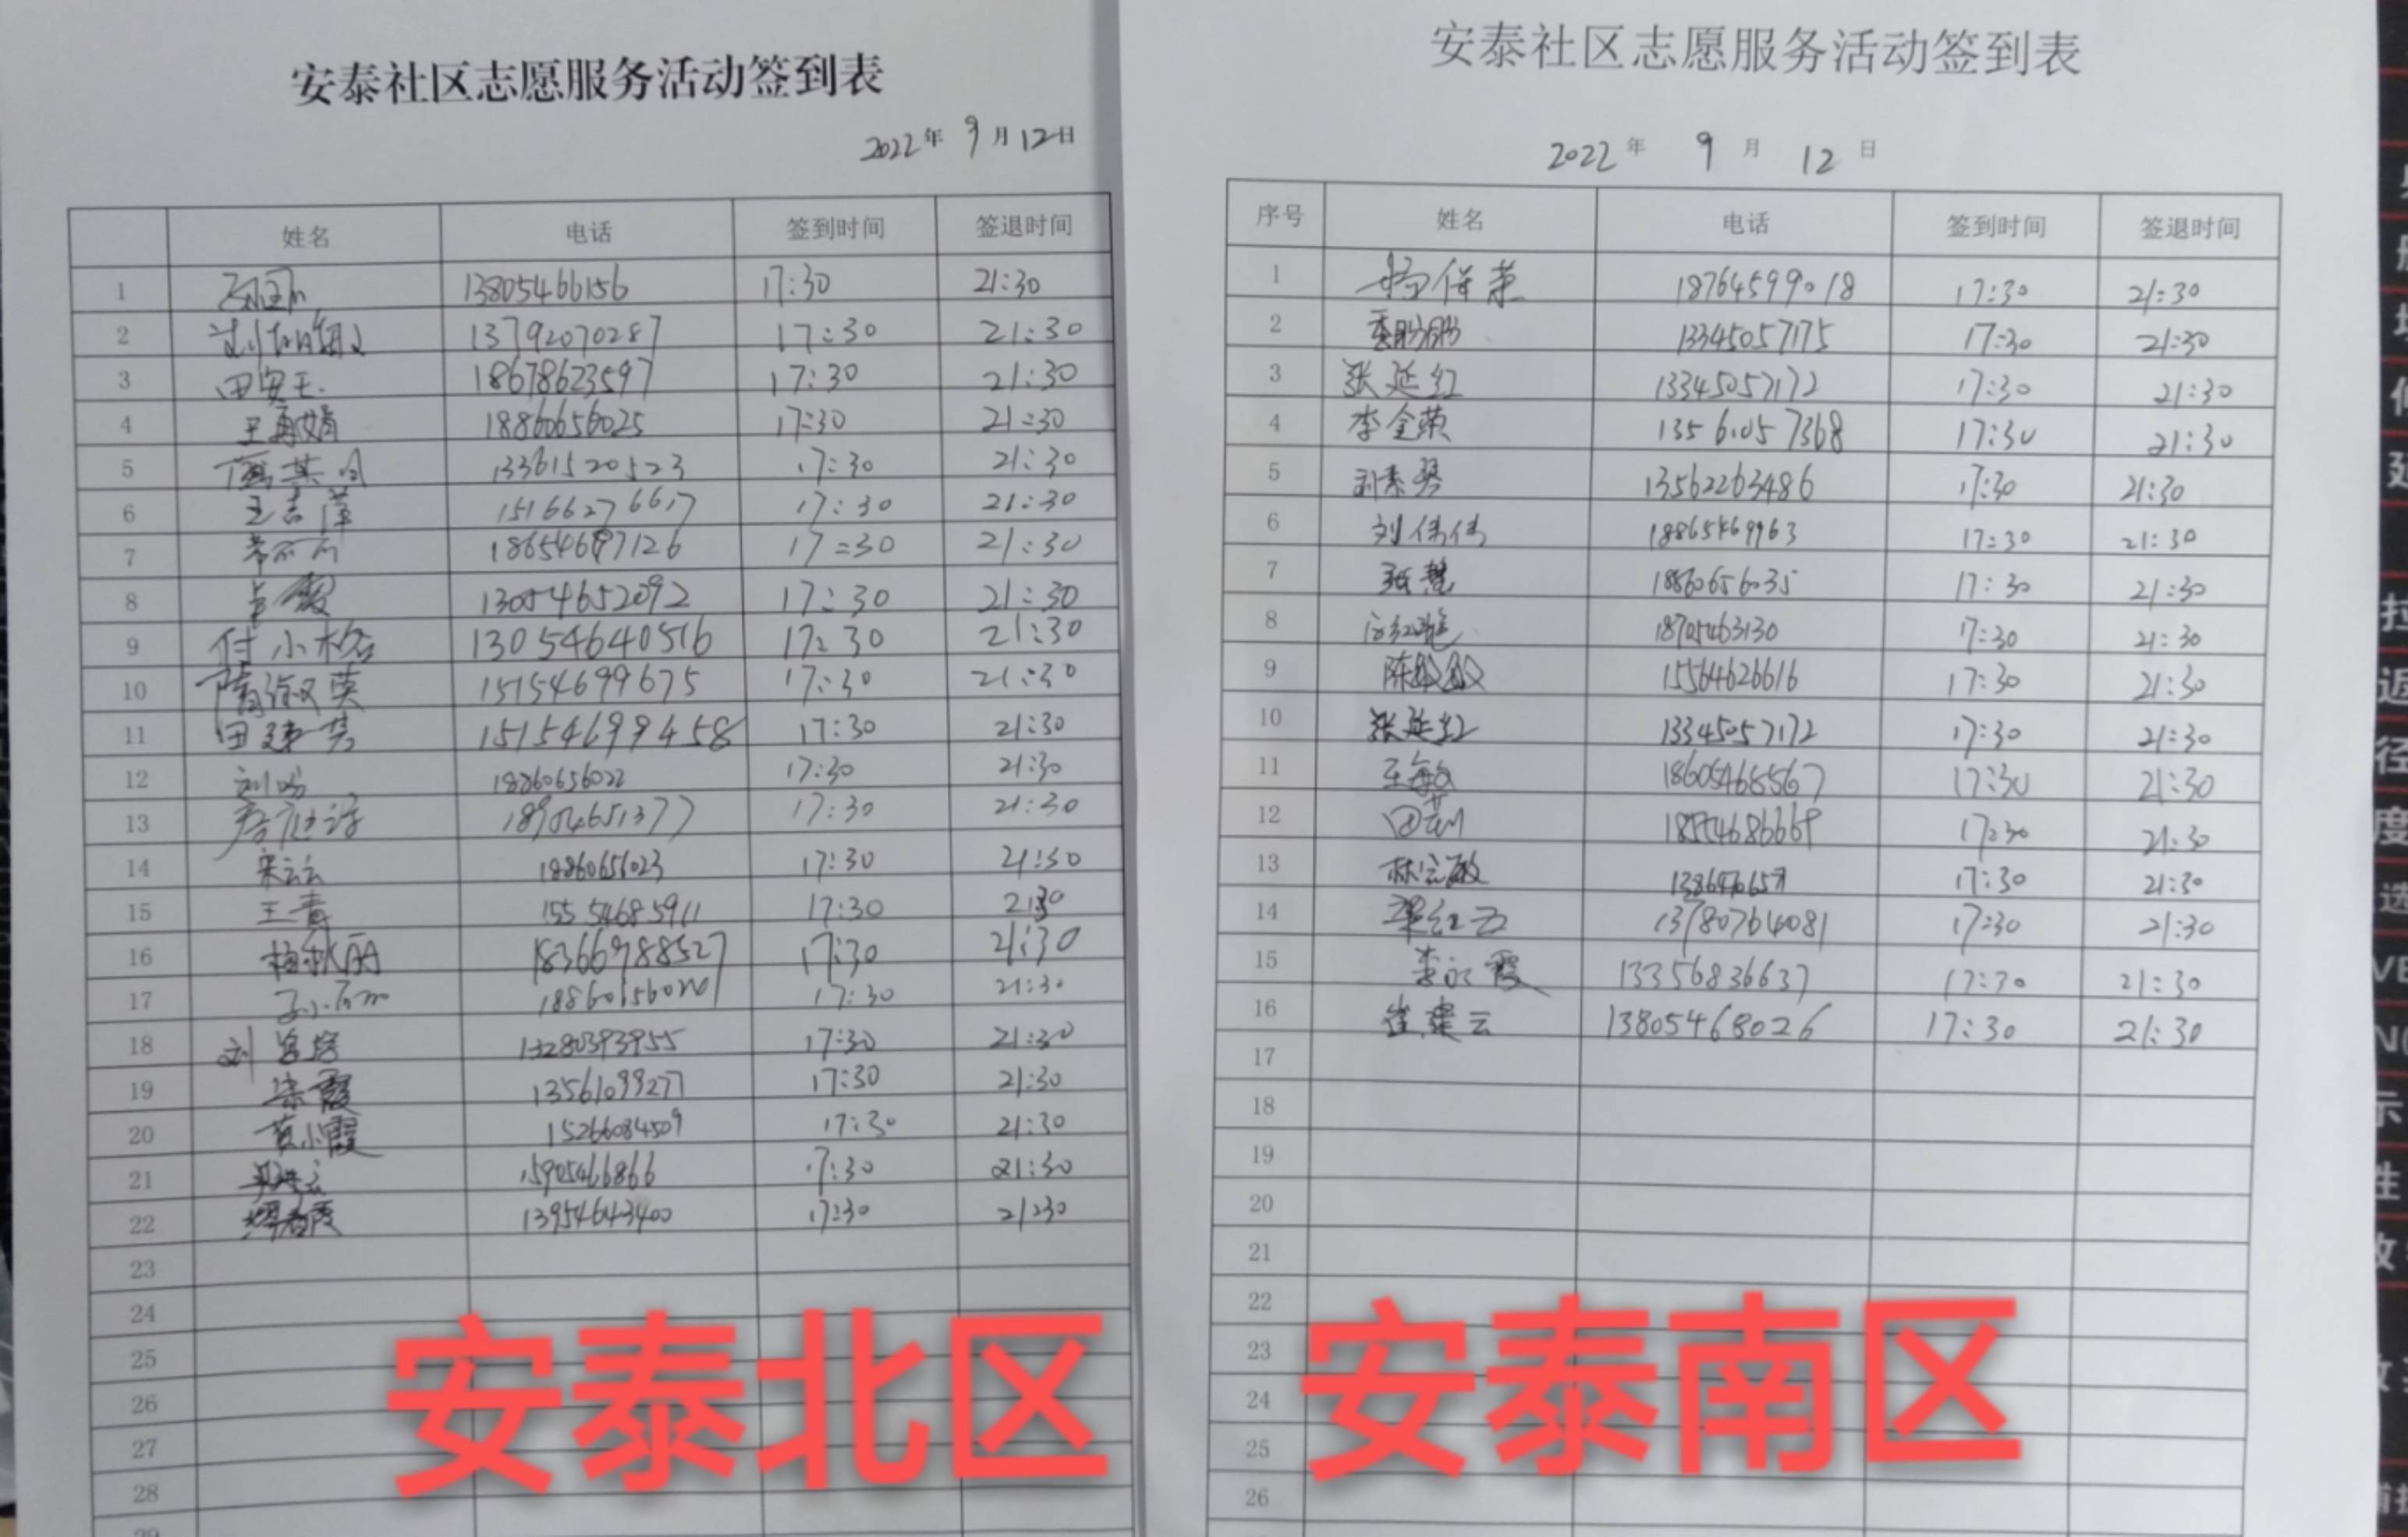 安泰社区志愿服务活动签到表
2022年 9月12日
姓名 电话 签到时间 签退时间
1 13805466156 17:30 21:30
2 13792070287 17:30 21:30
3 田安玉 18678623597 17:30 21:30
4 王再娟 18860656025 17:30 21:30
5 13361520523 17:30 21:30
6 王吉萍 15166276617 17:30 21:30
7 17:30 21:30
8 13054652092 17:30 21:30
9 付小格 13054640516 17:30 21:30
10 隋淑英 15154699675 17:30 21:30
11 田建芳 15154699458 17:30 21:30
12 刘 18860656022 17:30 21:30
13 18904651377 17:30 21:30
14 宋云云 18860656023 17:30 21:30
15 王青 15554685911 17:30 21:30
16 杨秋丽 18366988527 17:30 21:30
17 17:30 21:30
18 刘 13280393955 17:30 21:30
19 霞 13561099277 17:30 21:30
20 黄小霞 15266084509 17:30 21:30
21 15905466866 17:30 21:30
22 13954643400 17:30 21:30
23
24
25
26
27
28
29
安泰北区
安泰社区志愿服务活动签到表
2022年 9月 12日
序号 姓名 电话 签到时间 签退时间
1 18764599018 17:30 21:30
2 季盼盼 13345057175 17:30 21:30
3 张延红 13345057172 17:30 21:30
4 李金荣 13561057368 17:30 21:30
5 刘素琴 13562263486 17:30 21:30
6 刘伟伟 18865469963 17:30 21:30
7 张慧 18860656035 17:30 21:30
8 18705463130 17:30 21:30
9 陈敏敏 15564626616 17:30 21:30
10 张延红 13345057172 17:30 21:30
11 王敏 18605465567 17:30 21:30
12 田莉 18554686669 17:30 21:30
13 林宗敏 17:30 21:30
14 梁红云 13780764081 17:30 21:30
15 李永霞 13356836637 17:30 21:30
16 崔建云 13805468026 17:30 21:30
17
18
19
20
21
22
23
24
25
26
安泰南区